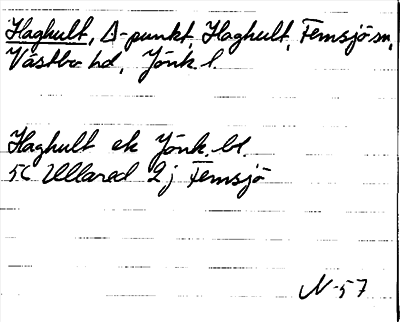 Haghult, Δ-punkt, Haghult, Femsjö sn,
Västbo hd, Jönk l.
Haghult ek Jönk. bl.
5C Ullared 2j Femsjö
N-57